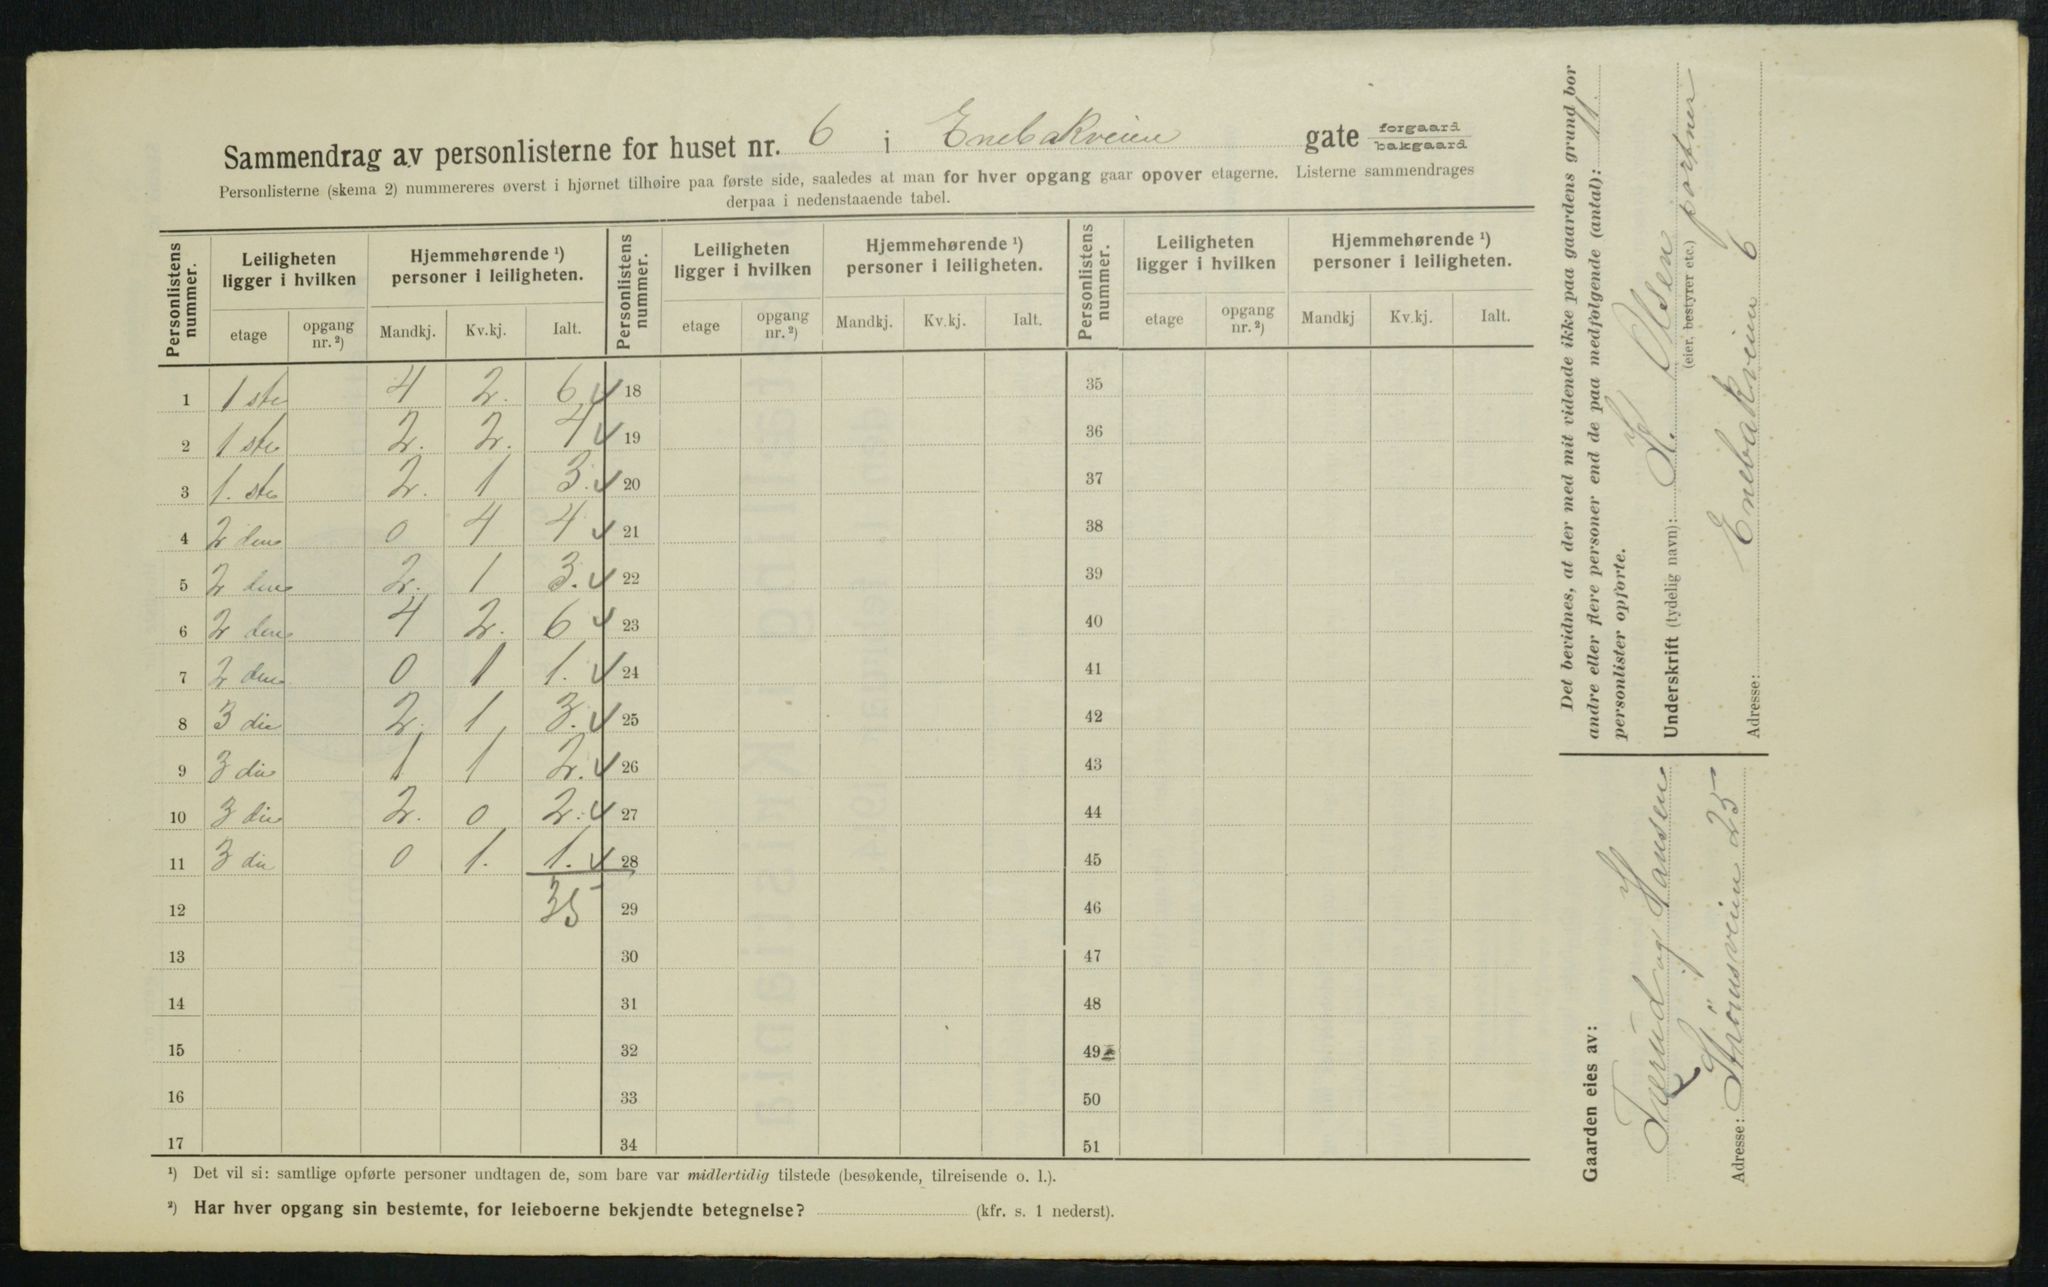 Sammendrag av personlisterne for huset nr. 6 i Enebakveien gate forgaard bakgaard
Personlisterne (skema 2) nummereres øverst i hjørnet tilhøire paa første side, saaledes at man for hver opgang gaar opover etagerne. Listerne sammendrages
derpaa i nedenstaaende tabel.
Personlistens nummer. Leiligheten ligger i hvilken Hjemmehørende ¹) personer i leiligheten. Personlistens nummer. Leiligheten ligger i hvilken Hjemmehørende ¹) personer i leiligheten. Personlistens nummer. Leiligheten ligger i hvilken Hjemmehørende ¹) personer i leiligheten.
etage opgang nr. ²) Mandkj. Kv.kj. Ialt. etage opgang nr. ²) Mandkj. Kv.kj. Ialt. etage opgang nr. ²) Mandkj Kv.kj. Ialt.
1 1 ste 4 2. 6 18 35
2 1 ste 2. 2. 4 19 36
3 1. ste 2. 1 3. 20 37
4 2 den 0 4 4 21 38
5 2 den 2. 1 3. 22 39
6 2 den 4 2. 6 23 40
7 2 den 0 1 1. 24 41
8 3 die 2. 1 3. 25 42
9 3 die 1 1 2. 26 43
10 3 die 2. 0 2. 27 44
11 3 die 0 1. 1. 28 45
12 35 29 46
13 30 47
14 31 48
15 32 49
16 33 50
17 34 51
¹) Det vil si: samtlige opførte personer undtagen de, som bare var midlertidig tilstede (besøkende, tilreisende o. l.).
²) Har hver opgang sin bestemte, for leieboerne bekjendte betegnelse? (kfr. s. 1 nederst).
Det bevidnes, at der med mit vidende ikke paa gaardens grund bor
andre eller flere personer end de paa medfølgende (antal): 11.
personlister opførte.
Underskrift (tydelig navn): H. Olsen portner
(eier, bestyrer etc.)
Adresse: Enebakveien 6
Gaarden eies av:
og Hansen
Adresse: Strömsveien 25